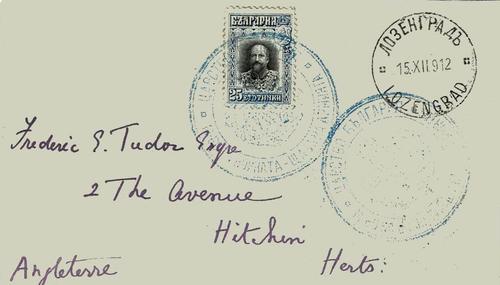 БЪЛГАРИЯ
25 СТОТИНКИ
ЛОЗЕНГРАДЪ
15.XII.912
LOZENGRAD
Frederic E. Tudor Esqre
2 The Avenue
Hitchin
Herts:
Angleterre